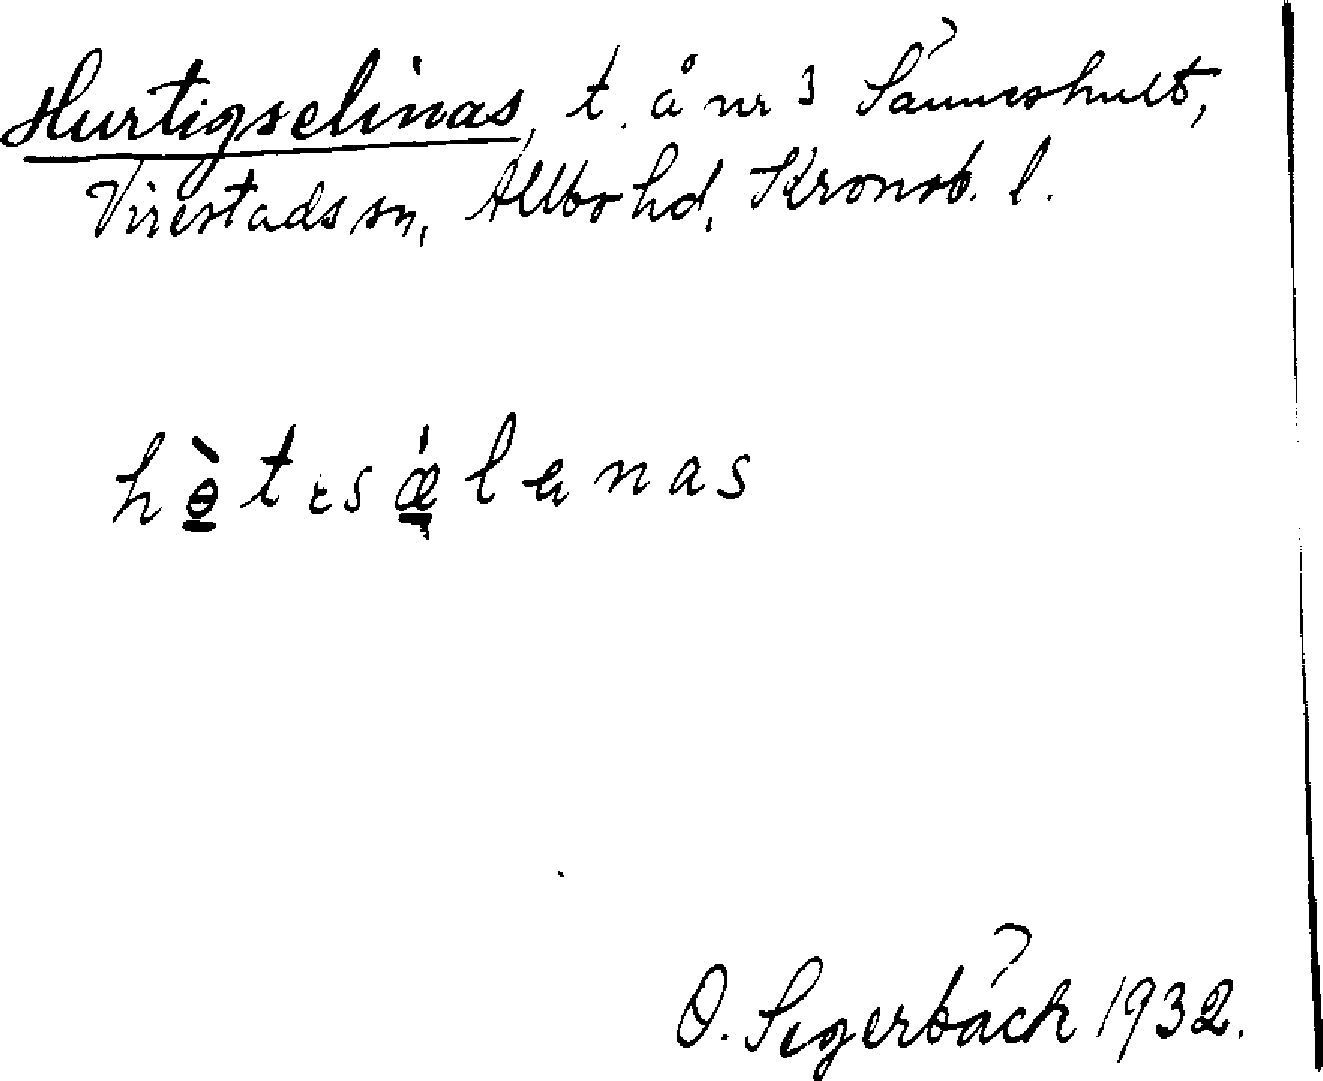 Hurtigselinas, t. å nr 3 Sännushult,
Virestads sn, Allbo hd, Kronob. l.
hètɛsǽlenas
O. Segerbäck 1932.